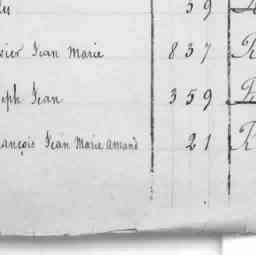 59
vier Jean Marie 837 R
seph Jean 359
rançois Jean Marie amand 21 R